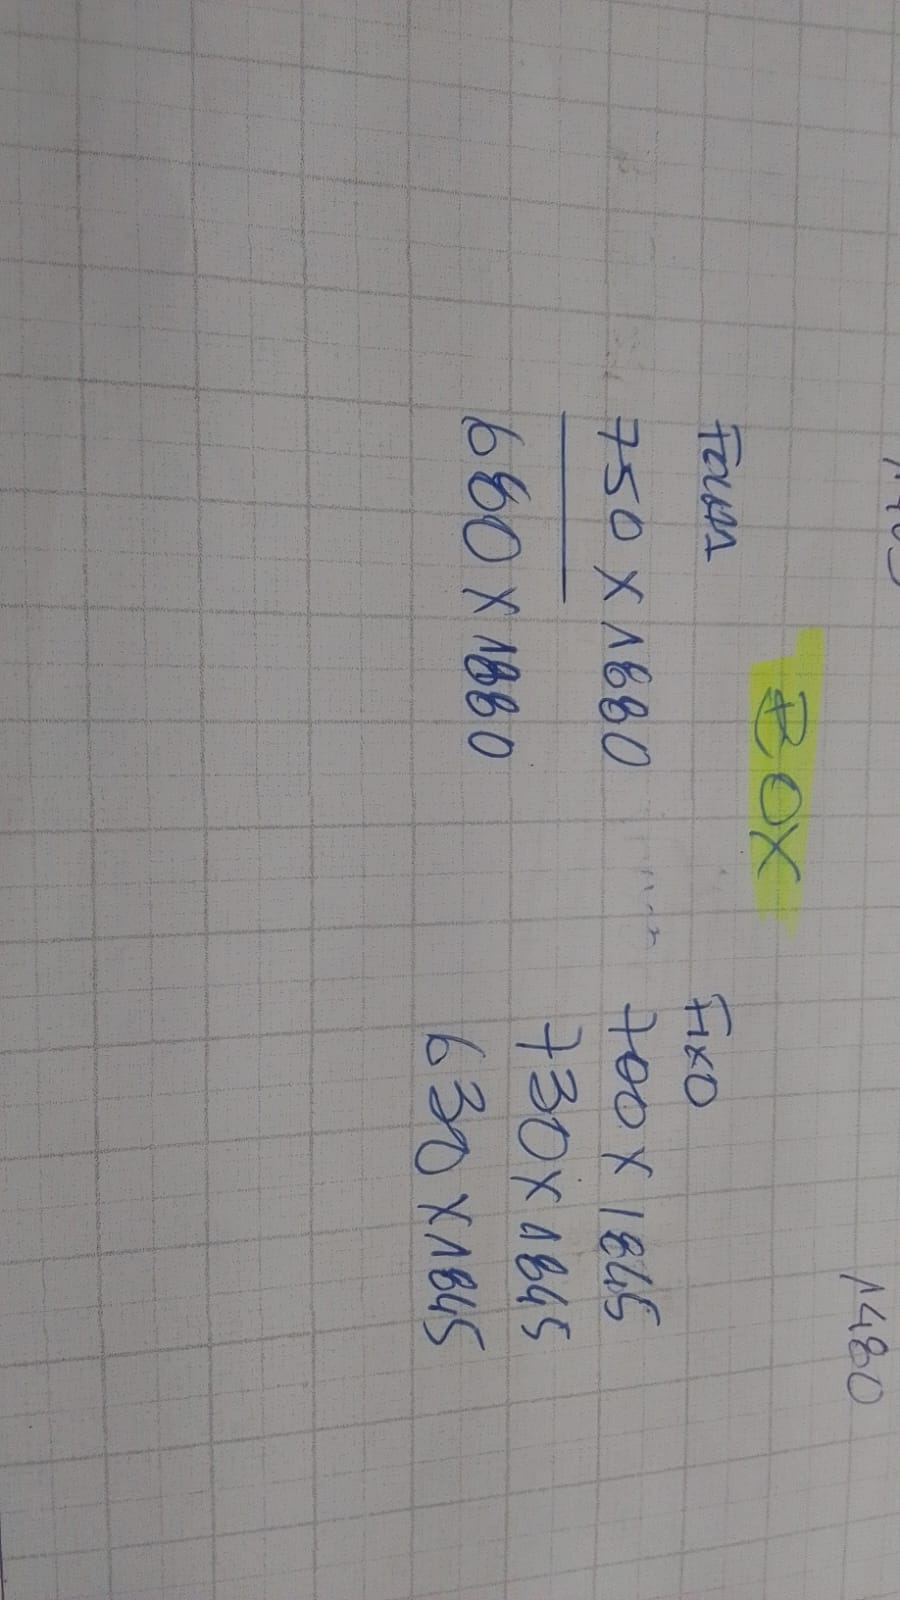 1480
BOX
Foum
750 x 1880
680 x 1880
Fixo
700 x 1845
730 x 1845
630 x 1845